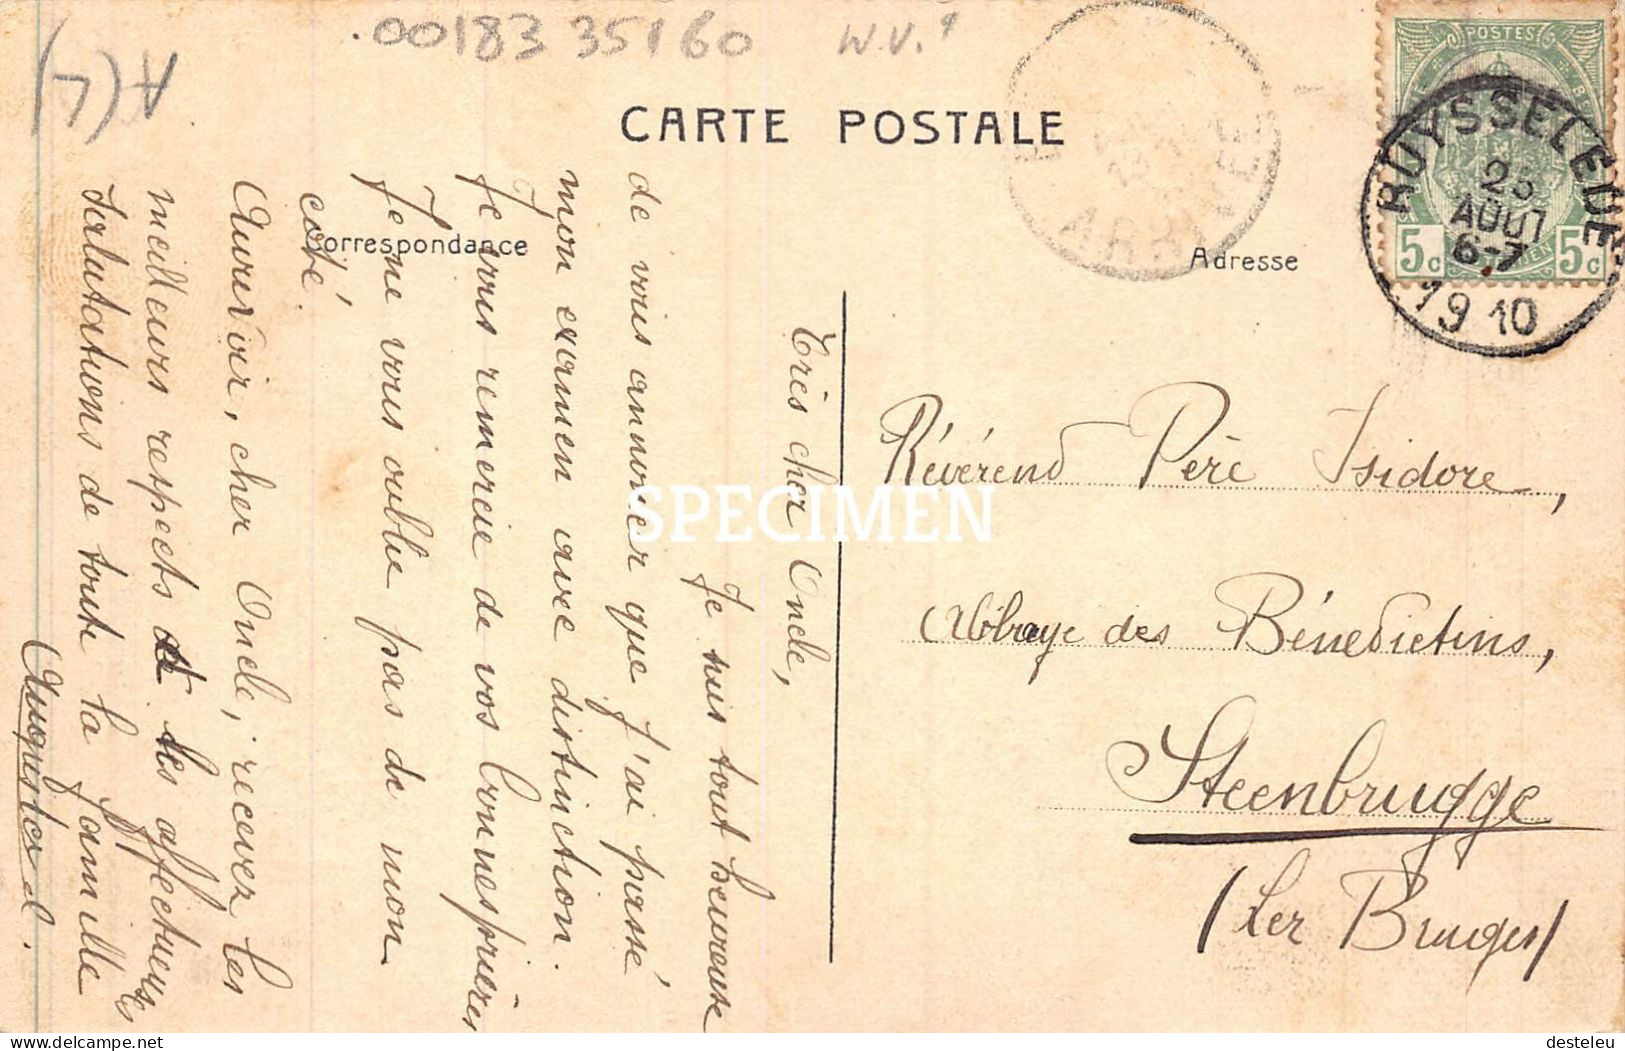 .00183 35160 W.V.
CARTE POSTALE
Correspondance
Adresse
POSTES
5c 5c
RUYSSELEDE
25
AOUT
6-7
1910
ARRIVEE
Très cher Oncle,
Je suis tout heureuse
de vous annoncer que j'ai passé
mon examen avec distinction.
Je vous remercie de vos bonnes prières
Je ne vous oublie pas de mon
coté.
Aurevoir, cher Oncle, recevez les
meilleurs respects et les affectueuses
salutations de toute la famille
Révérend Père Isidore,
Abbaye des Bénedictins,
Steenbrugge
(Lez Bruges)
SPECIMEN
desteleu